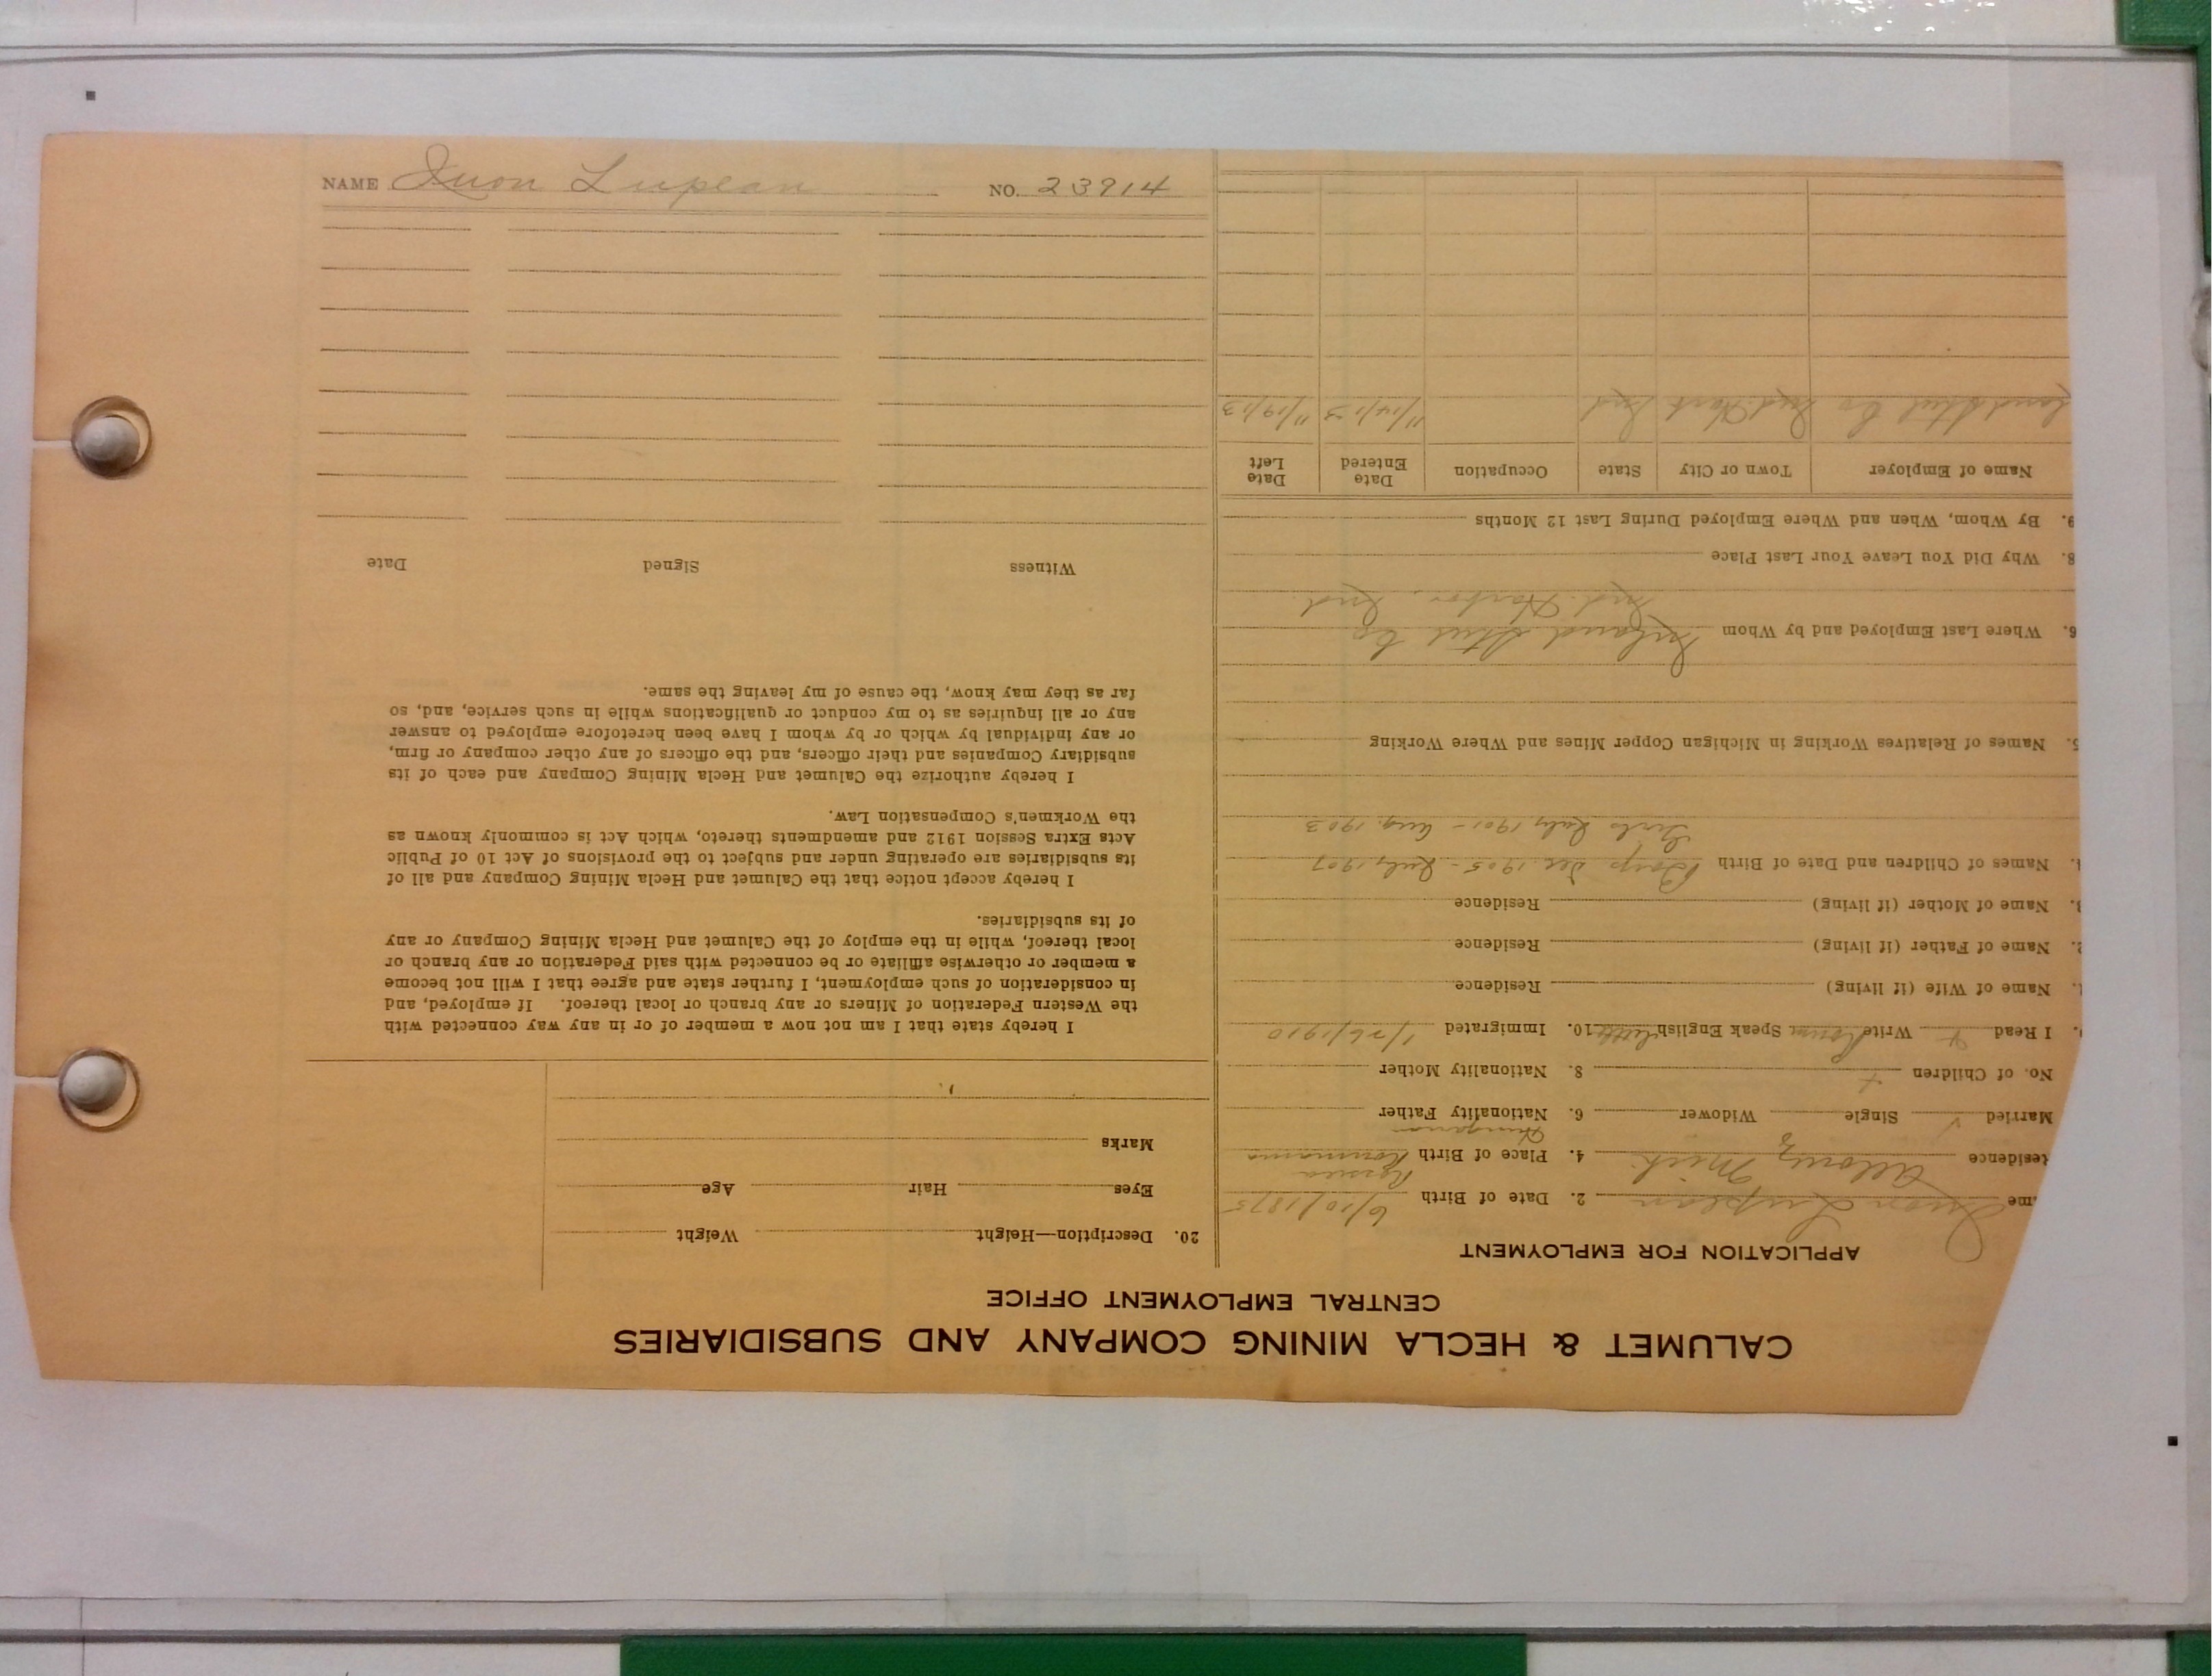 NAME Iuon Lupean NO. 23914
CALUMET & HECLA MINING COMPANY AND SUBSIDIARIES
CENTRAL EMPLOYMENT OFFICE
APPLICATION FOR EMPLOYMENT
me Iuon Lupean 2. Date of Birth 6/10/1875
esidence Allouez Mich. 4. Place of Birth Roumania
Married Single Widower 6. Nationality Father
No. of Children 4 8. Nationality Mother
I Read Write Speak English little 10. Immigrated 1/26/1910
Name of Wife (if living) Residence
2. Name of Father (if living) Residence
3. Name of Mother (if living) Residence
Names of Children and Date of Birth Boys Dec 1905 - July 1907
Girls July 1901 - Aug. 1903
5. Names of Relatives Working in Michigan Copper Mines and Where Working
6. Where Last Employed and by Whom Inland Steel Co
Ind. Harbor, Ind.
8. Why Did You Leave Your Last Place
9. By Whom, When and Where Employed During Last 12 Months
Name of Employer Town or City State Occupation Date Entered Date Left
land Steel Co Ind. Harb Ind 11/14/13 11/19/13
20. Description—Height Weight
Eyes Hair Age
Marks
I hereby state that I am not now a member of or in any way connected with
the Western Federation of Miners or any branch or local thereof. If employed, and
in consideration of such employment, I further state and agree that I will not become
a member or otherwise affiliate or be connected with said Federation or any branch or
local thereof, while in the employ of the Calumet and Hecla Mining Company or any
of its subsidiaries.
I hereby accept notice that the Calumet and Hecla Mining Company and all of
its subsidiaries are operating under and subject to the provisions of Act 10 of Public
Acts Extra Session 1912 and amendments thereto, which Act is commonly known as
the Workmen's Compensation Law.
I hereby authorize the Calumet and Hecla Mining Company and each of its
subsidiary Companies and their officers, and the officers of any other company or firm,
or any individual by which or by whom I have been heretofore employed to answer
any or all inquiries as to my conduct or qualifications while in such service, and, so
far as they may know, the cause of my leaving the same.
Witness Signed Date